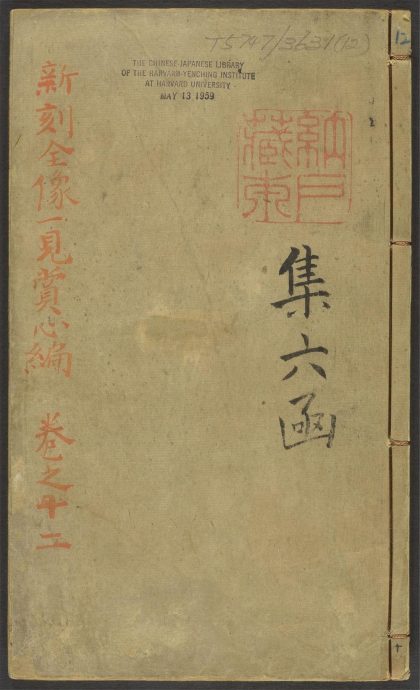 12
T5747/3639(12)
THE CHINESE-JAPANESE LIBRARY
OF THE HARVARD-YENCHING INSTITUTE
AT HARVARD UNIVERSITY
MAY 13 1959
集六函
新刻全像一見賞心編 卷之十二